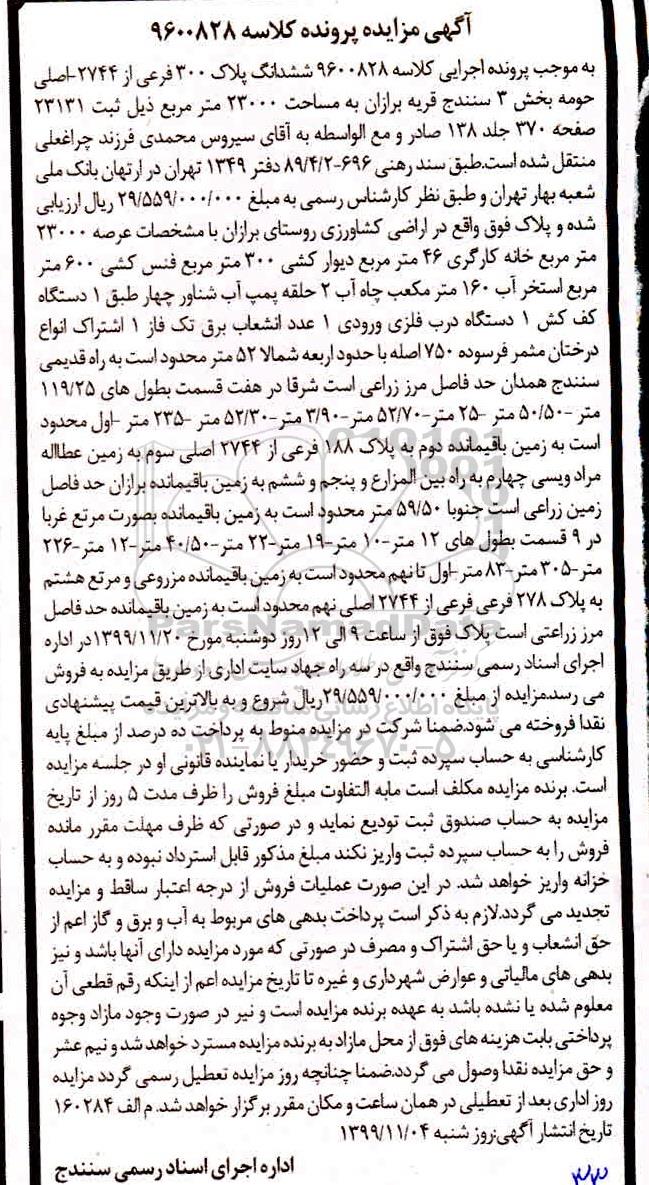 آگهی مزایده پرونده کلاسه ۹۶۰۰۸۲۸
به موجب پرونده اجرایی کلاسه ۹۶۰۰۸۲۸ ششدانگ پلاک ۳۰۰ فرعی از ۲۷۴۴-اصلی
حومه بخش ۳ سنندج قریه برازان به مساحت ۲۳۰۰۰ متر مربع ذیل ثبت ۲۳۱۳۱
صفحه ۳۷۰ جلد ۱۳۸ صادر و مع الواسطه به آقای سیروس محمدی فرزند چراغعلی
منتقل شده است.طبق سند رهنی ۶۹۶-۸۹/۴/۲ دفتر ۱۳۴۹ تهران در ارتهان بانک ملی
شعبه بهار تهران و طبق نظر کارشناس رسمی به مبلغ ۲۹/۵۵۹/۰۰۰/۰۰۰ ریال ارزیابی
شده و پلاک فوق واقع در اراضی کشاورزی روستای برازان با مشخصات عرصه ۲۳۰۰۰
متر مربع خانه کارگری ۴۶ متر مربع دیوار کشی ۳۰۰ متر مربع فنس کشی ۶۰۰ متر
مربع استخر آب ۱۶۰ متر مکعب چاه آب ۲ حلقه پمپ آب شناور چهار طبق ۱ دستگاه
کف کش ۱ دستگاه درب فلزی ورودی ۱ عدد انشعاب برق تک فاز ۱ اشتراک انواع
درختان مثمر فرسوده ۷۵۰ اصله با حدود اربعه شمالا ۵۲ متر محدود است به راه قدیمی
سنندج همدان حد فاصل مرز زراعی است شرقا در هفت قسمت بطول های ۱۱۹/۲۵
متر -۵۰/۵۰ متر -۲۵ متر-۵۲/۷۰ متر-۳/۹۰ متر-۵۲/۳۰ متر -۲۳۵ متر -اول محدود
است به زمین باقیمانده دوم به پلاک ۱۸۸ فرعی از ۲۷۴۴ اصلی سوم به زمین عطااله
مراد ویسی چهارم به راه بین المزارع و پنجم و ششم به زمین باقیمانده برازان حد فاصل
زمین زراعی است جنوبا ۵۹/۵۰ متر محدود است به زمین باقیمانده بصورت مرتع غربا
در ۹ قسمت بطول های ۱۲ متر-۱۰ متر-۱۹ متر-۲۲ متر-۴۰/۵۰ متر-۱۲ متر-۲۲۶
متر-۳۰۵ متر-۸۳ متر-اول تا نهم محدود است به زمین باقیمانده مزروعی و مرتع هشتم
به پلاک ۲۷۸ فرعی فرعی از ۲۷۴۴ اصلی نهم محدود است به زمین باقیمانده حد فاصل
مرز زراعتی است پلاک فوق از ساعت ۹ الی ۱۲روز دوشنبه مورخ ۱۳۹۹/۱۱/۲۰در اداره
اجرای اسناد رسمی سنندج واقع در سه راه جهاد سایت اداری از طریق مزایده به فروش
می رسد.مزایده از مبلغ ۲۹/۵۵۹/۰۰۰/۰۰۰ریال شروع و به بالاترین قیمت پیشنهادی
نقدا فروخته می شود.ضمنا شرکت در مزایده منوط به پرداخت ده درصد از مبلغ پایه
کارشناسی به حساب سپرده ثبت و حضور خریدار یا نماینده قانونی او در جلسه مزایده
است. برنده مزایده مکلف است مابه التفاوت مبلغ فروش را ظرف مدت ۵ روز از تاریخ
مزایده به حساب صندوق ثبت تودیع نماید و در صورتی که ظرف مهلت مقرر مانده
فروش را به حساب سپرده ثبت واریز نکند مبلغ مذکور قابل استرداد نبوده و به حساب
خزانه واریز خواهد شد. در این صورت عملیات فروش از درجه اعتبار ساقط و مزایده
تجدید می گردد.لازم به ذکر است پرداخت بدهی های مربوط به آب و برق و گاز اعم از
حق انشعاب و یا حق اشتراک و مصرف در صورتی که مورد مزایده دارای آنها باشد و نیز
بدهی های مالیاتی و عوارض شهرداری و غیره تا تاریخ مزایده اعم از اینکه رقم قطعی آن
معلوم شده یا نشده باشد به عهده برنده مزایده است و نیر در صورت وجود مازاد وجوه
پرداختی بابت هزینه های فوق از محل مازاد به برنده مزایده مسترد خواهد شد و نیم عشر
و حق مزایده نقدا وصول می گردد.ضمنا چنانچه روز مزایده تعطیل رسمی گردد مزایده
روز اداری بعد از تعطیلی در همان ساعت و مکان مقرر برگزار خواهد شد. م الف ۱۶۰۲۸۴
تاریخ انتشار آگهی:روز شنبه ۱۳۹۹/۱۱/۰۴
اداره اجرای اسناد رسمی سنندج
۳۳
ParsNamadData
پایگاه اطلاع رسانی مناقصه و مزایده
۰۲۱-۸۸۳۴۹۶۷۰-۵